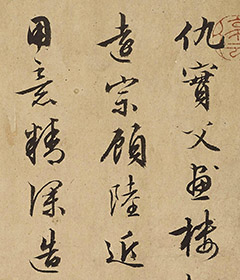 仇實父畫樓
遠宗顧陸近
用意精深造